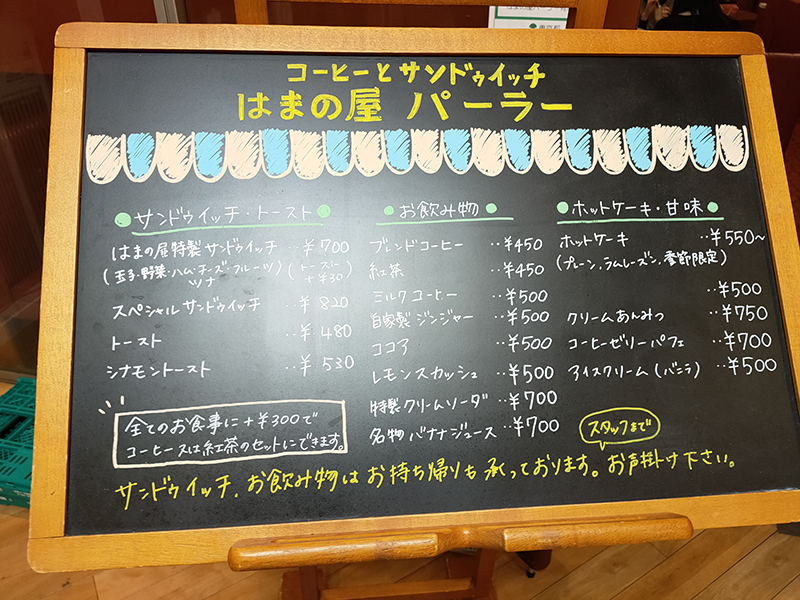 コーヒーとサンドゥイッチ
はまの屋 パーラー
●サンドゥイッチ・トースト●
はまの屋特製サンドゥイッチ ‥¥700
(玉子・野菜・ハム・チーズ・フルーツ ツナ) (トーストに +¥30)
スペシャルサンドゥイッチ ‥¥820
トースト ‥¥480
シナモントースト ‥¥530
全てのお食事に+¥300で
コーヒー又は紅茶のセットにできます。
●お飲み物●
ブレンドコーヒー ‥¥450
紅茶 ‥¥450
ミルクコーヒー ‥¥500
自家製ジンジャー ‥¥500
ココア ‥¥500
レモンスカッシュ ‥¥500
特製クリームソーダ ‥¥700
名物バナナジュース ‥¥700
●ホットケーキ・甘味●
ホットケーキ ‥¥550~
(プレーン,ラムレーズン,季節限定)
‥¥500
クリームあんみつ ‥¥750
コーヒーゼリーパフェ ‥¥700
アイスクリーム(バニラ) ‥¥500
スタッフまで
サンドゥイッチ、お飲み物はお持ち帰りも承っております。お声掛け下さい。